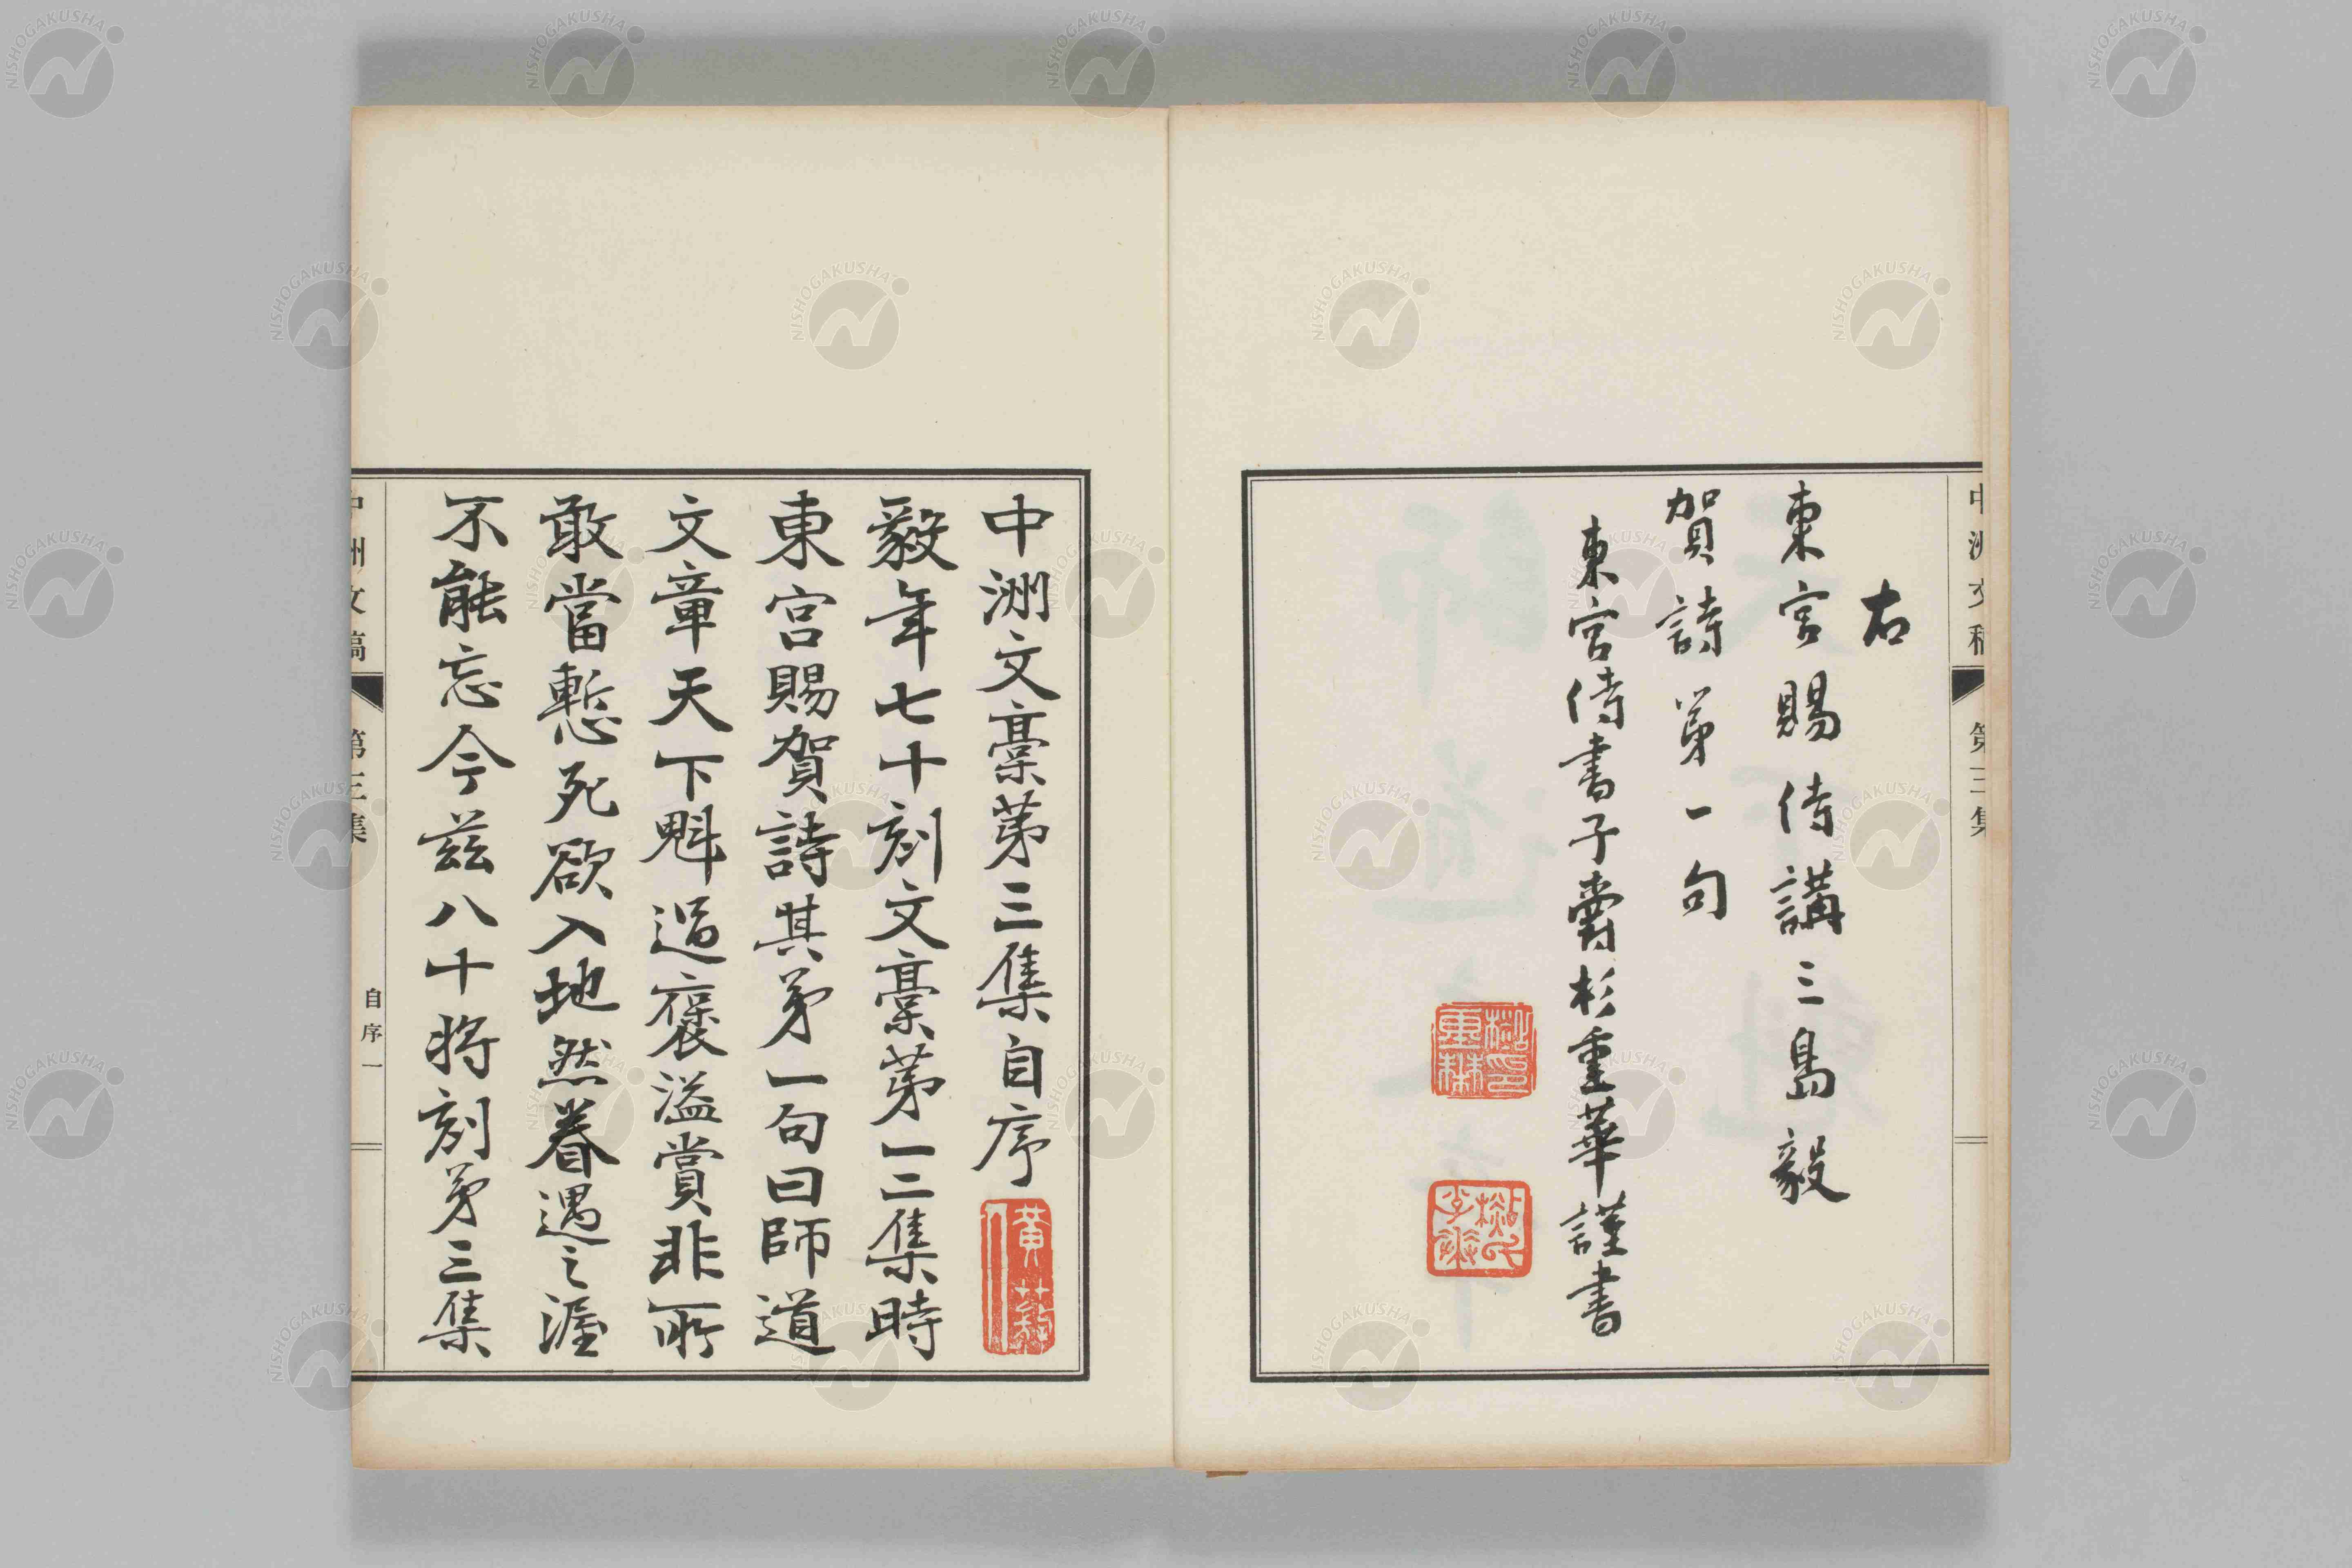 右
東宮賜侍講三島毅
賀詩第一句
東宮侍書子爵杉重華謹書
中洲文稾第三集自序
毅年七十刻文稾第一二集時
東宮賜賀詩其第一句曰師道
文章天下魁過襃溢賞非所
敢當慙死欲入地然眷遇之渥
不能忘今茲八十將刻第三集
中洲文稿 第三集 自序 一
NISHOGAKUSHA